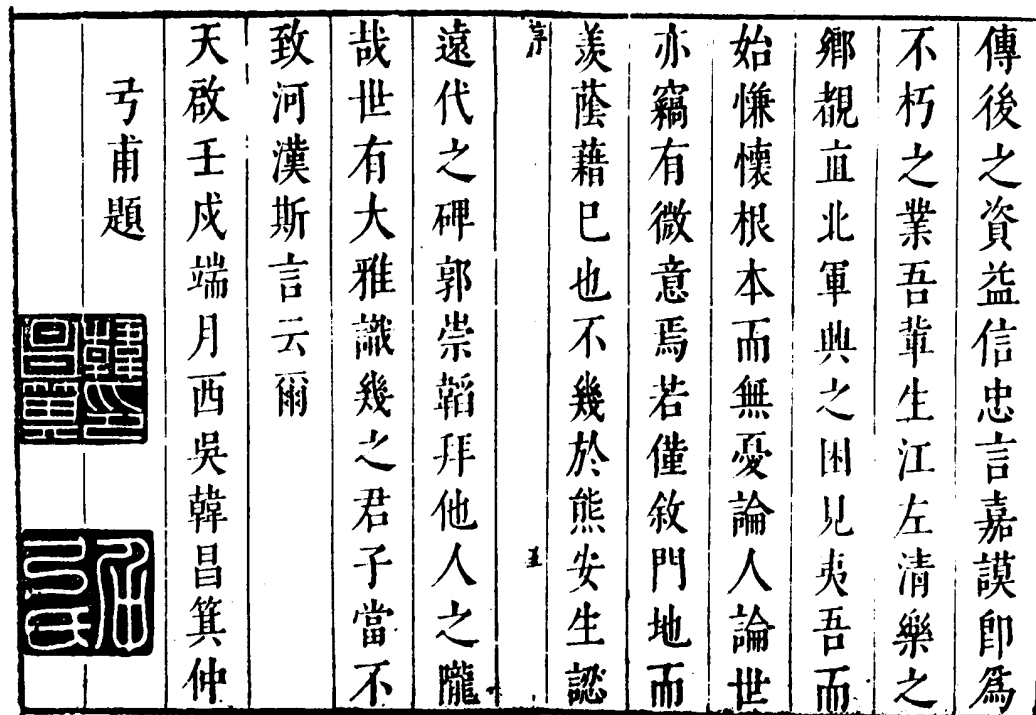 傳後之資益信忠言嘉謨即爲
不朽之業吾輩生江左清樂之
鄉覩直北軍興之困見夷吾而
始慊懷根本而無憂論人論世
亦竊有微意焉若僅敘門地而
羨蔭藉已也不幾於熊安生認
序
五
遠代之碑郭崇韜拜他人之隴
哉世有大雅識幾之君子當不
致河漢斯言云爾
天啟壬戌端月西吳韓昌箕仲
弓甫題
韓昌箕印
仲弓氏